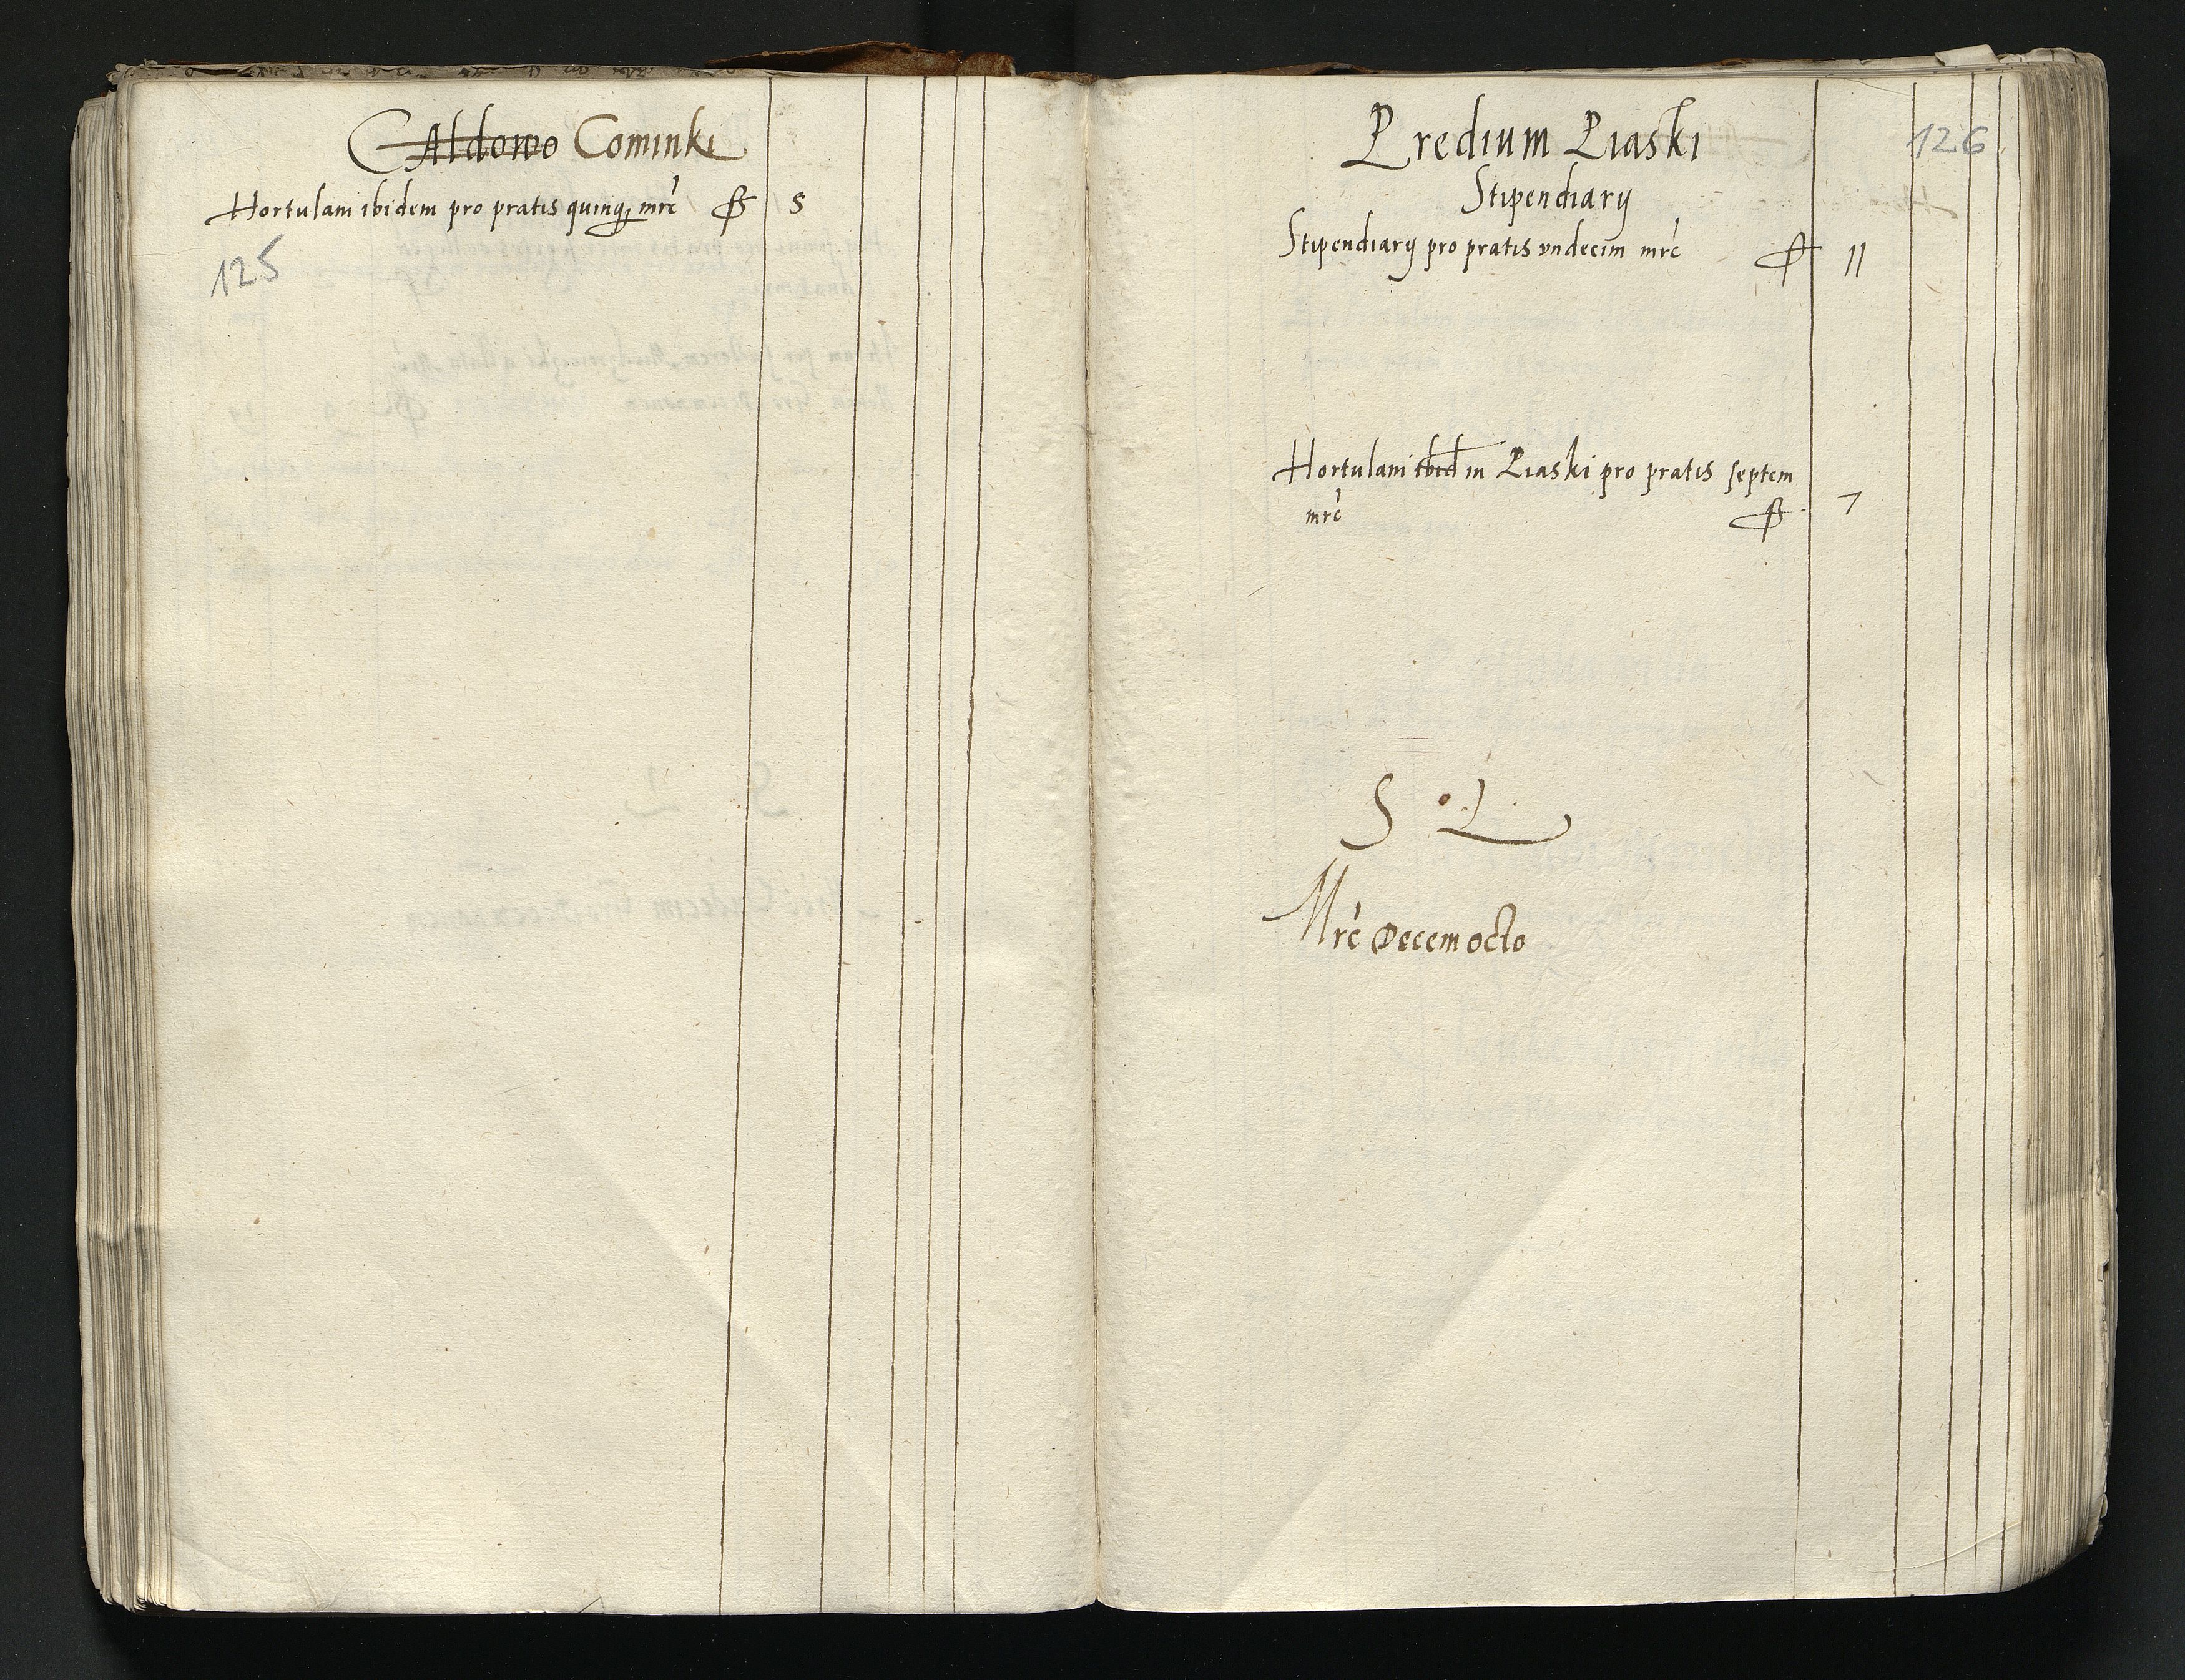 Caldowo Cominki
Hortulani ibidem pro pratis quinq; mrc 5
125
126
Predium Piaski
Stipendiarÿ
Stipendiarÿ pro pratis vndecim mrc 11
Hortulani ibid in Piaski pro pratis septem
mrc 7
S L
Mrc Decem octo